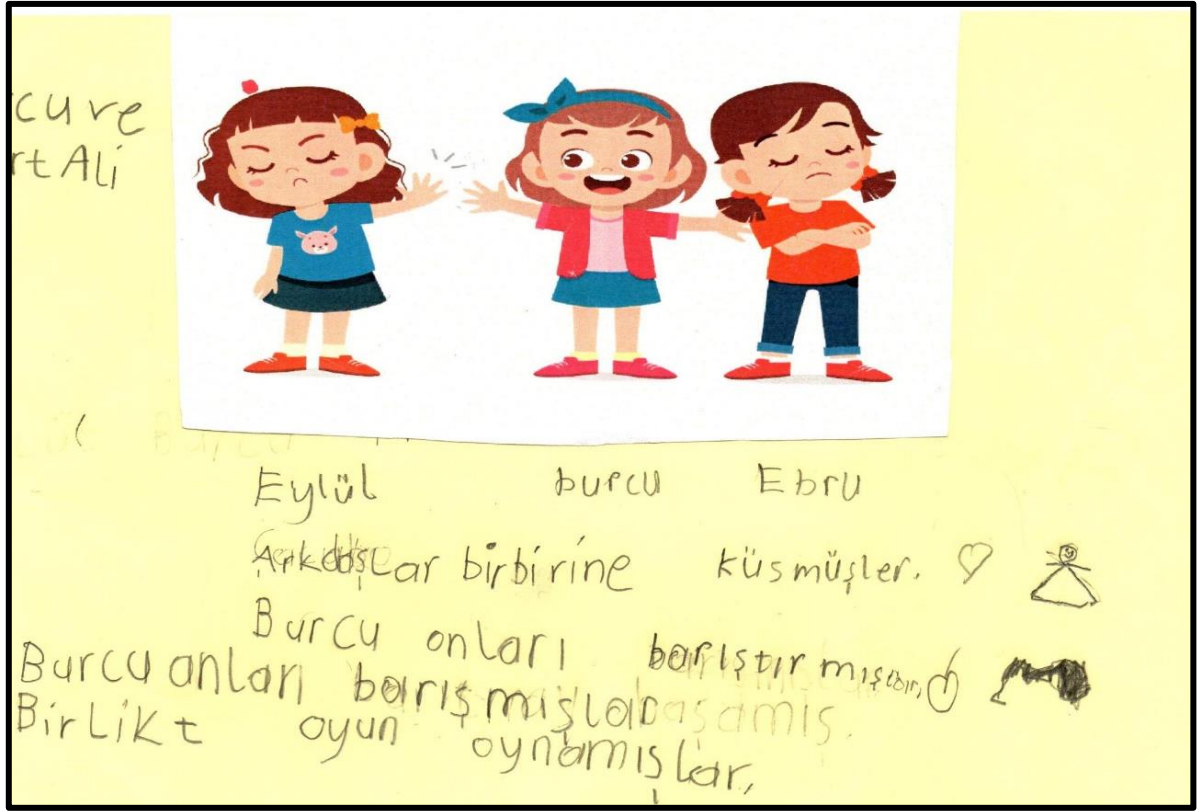 cu ve
rt Ali
Eylül burcu Ebru
Arkdaşlar birbirine küsmüşler.
Burcu onları barıştırmışlar,
Burcu anları barışmışlar
Birlikt oyun oynamışlar,